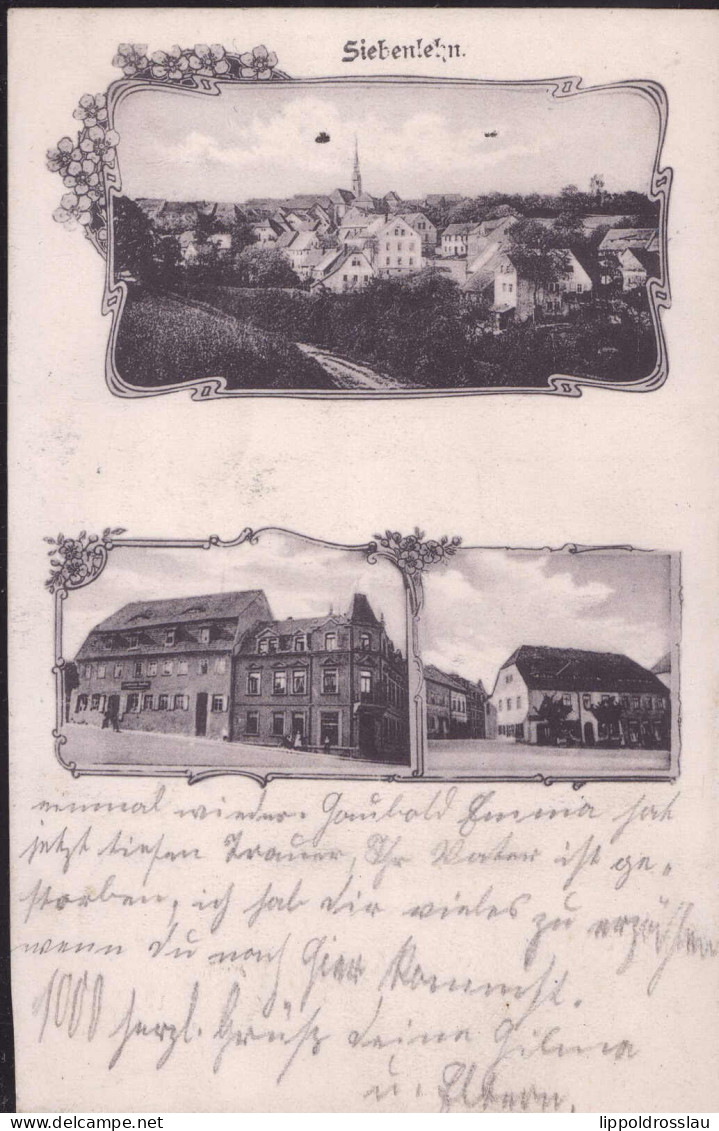 Siebenlehn.
einmal wieder. Haubold Emma hat
jetzt tiefen Trauer, Ihr Vater ist ge-
storben, ich hab dir vieles zu erzählen
wenn du nach hier kommst.
1000 herzl. Grüße deine Hilma
u. Eltern.
lippoldrosslau